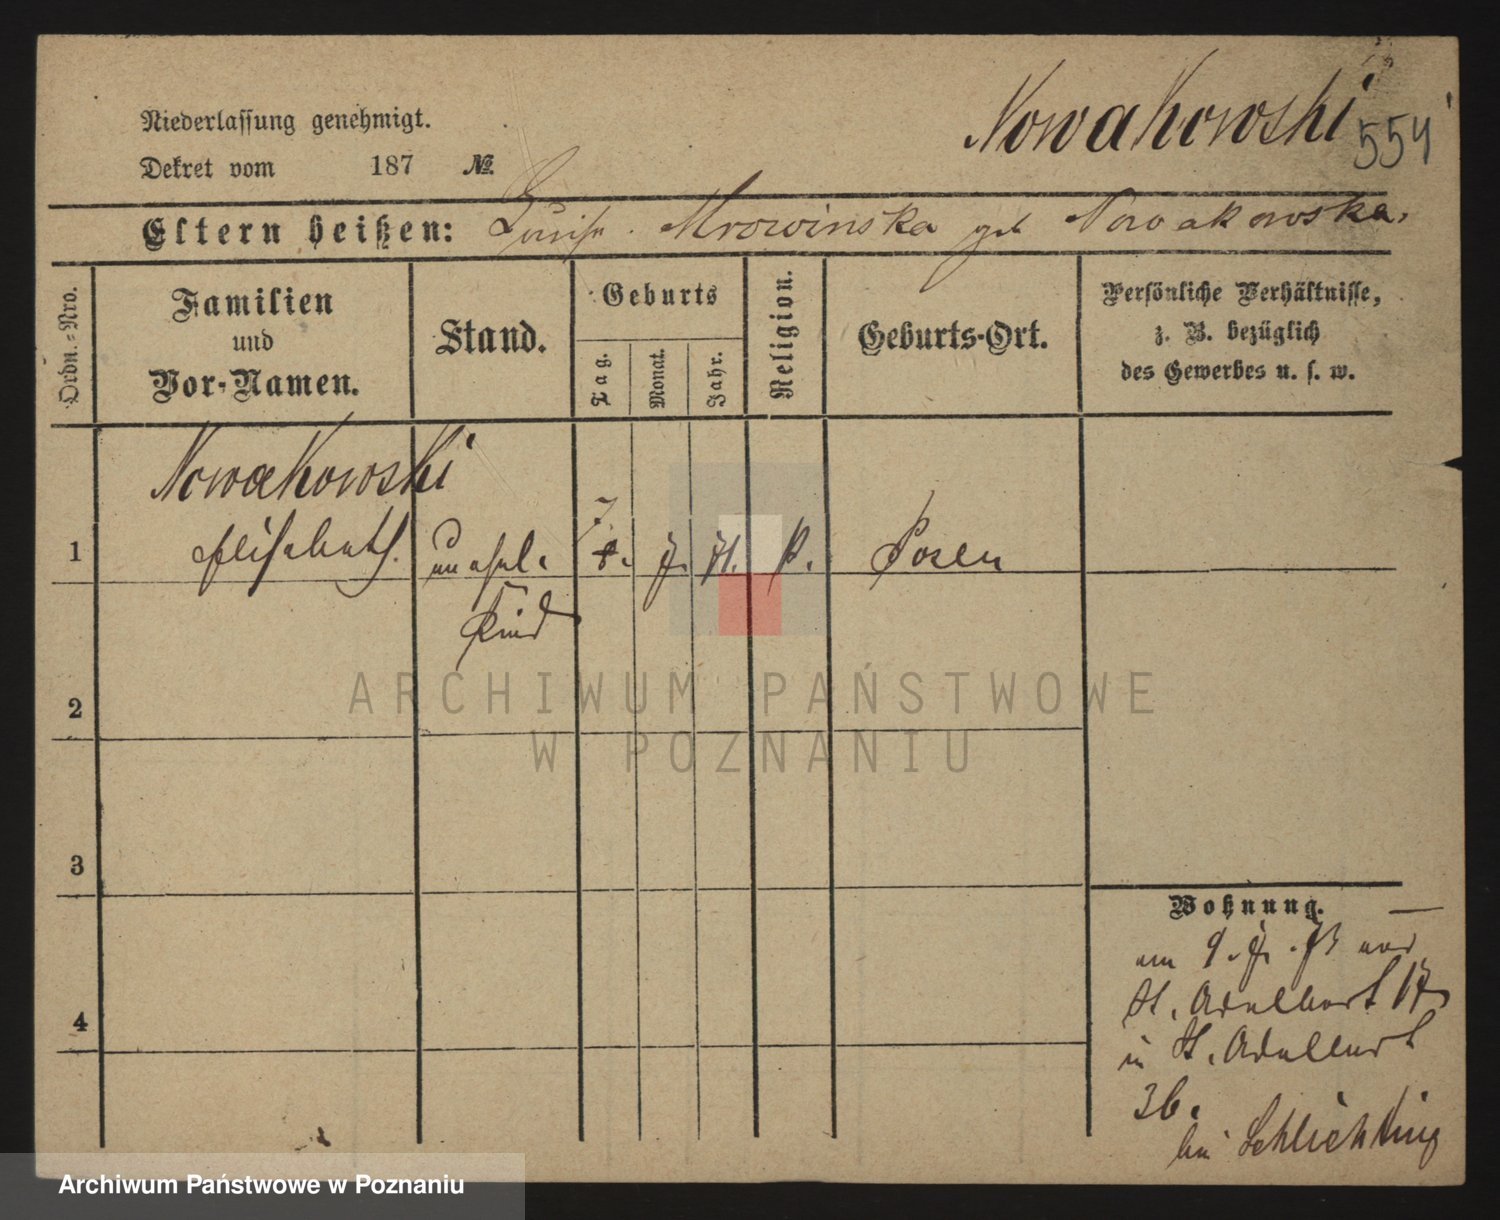 Nowakowski 554
Niederlassung genehmigt.
Dekret vom 187 №
Eltern heißen: Mrowinska geb Nowakowska.
Ordn.-Nro.
Familien
und
Vor-Namen.
Stand.
Geburts
Tag.
Monat.
Jahr.
Religion.
Geburts-Ort.
Persönliche Verhältnisse,
z. B. bezüglich
des Gewerbes u. s. w.
Nowakowski
1 Elisabeth. unehel. 7. Posen
Kind
2
3
4
Wohnung.
am 9. 7. 73 von
St. Adalbert 17
in St. Adalbert
36.
bei Schlichting
ARCHIWUM PAŃSTWOWE
W POZNANIU
Archiwum Państwowe w Poznaniu